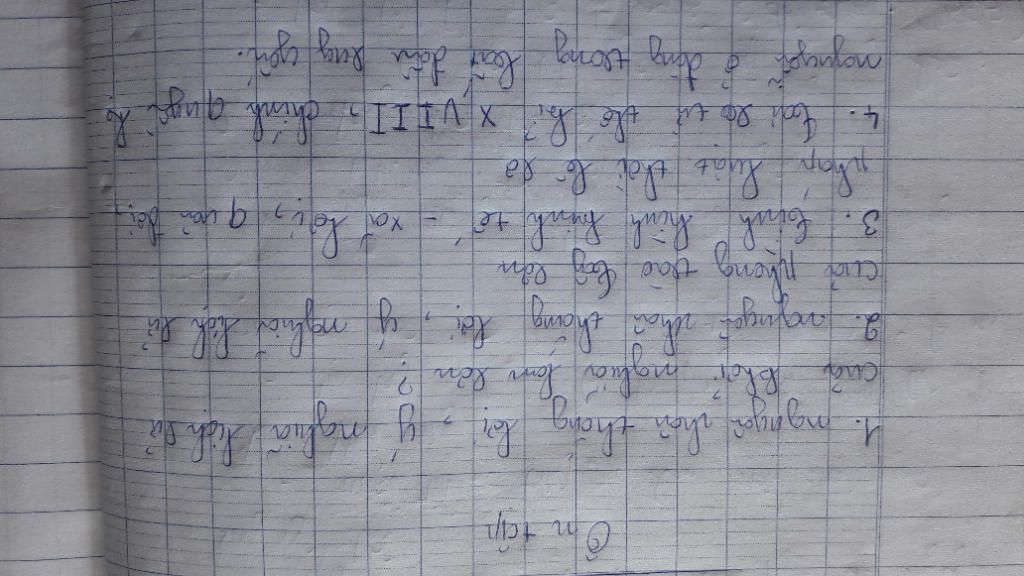 Ôn tập
1. nguyên nhân thắng lợi, ý nghĩa lịch sử
của khởi nghĩa lam sơn?
2. nguyên nhân thắng lợi, ý nghĩa lịch sử
của phong trào tây sơn
3. tình hình kinh tế - xã hội, quân đội,
pháp luật thời lê sơ
4. tại sao từ thế kỉ XVIII, chính quyền lê
nguyễn ở đàng trong